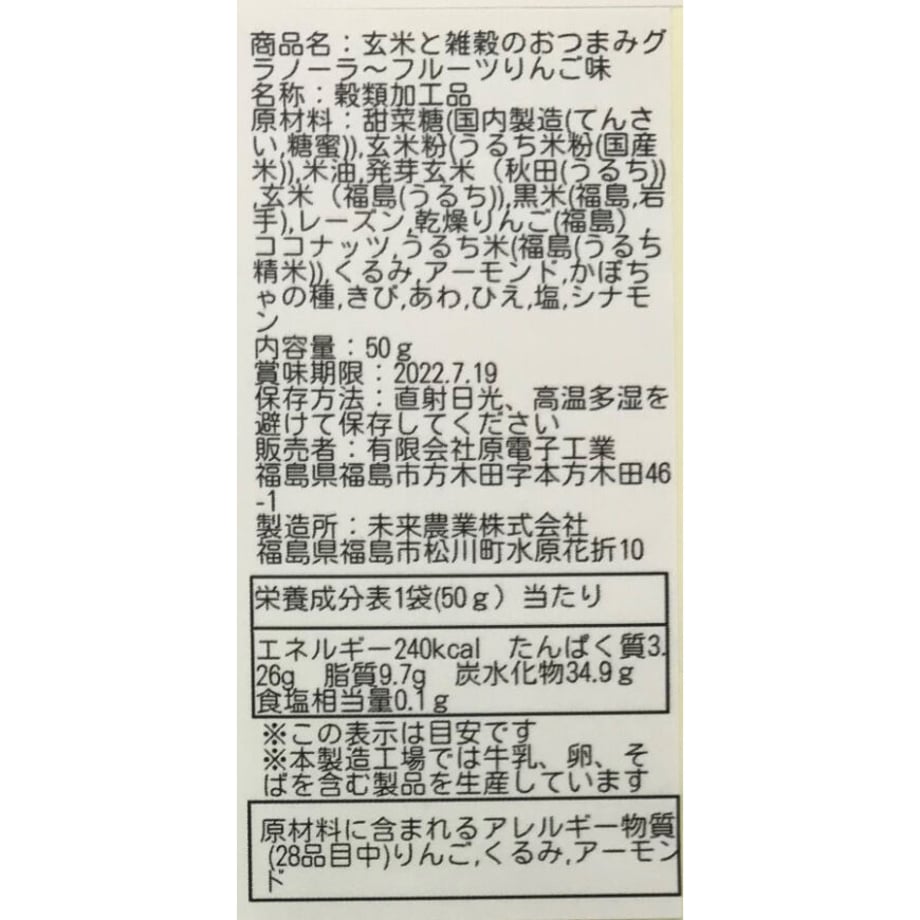 商品名：玄米と雑穀のおつまみグ
ラノーラ～フルーツりんご味
名称：穀類加工品
原材料：甜菜糖(国内製造(てんさ
い,糖蜜)),玄米粉(うるち米粉(国産
米)),米油,発芽玄米（秋田(うるち))
,玄米（福島(うるち)),黒米(福島,岩
手),レーズン,乾燥りんご(福島）,
ココナッツ,うるち米(福島(うるち
精米)),くるみ,アーモンド,かぼち
ゃの種,きび,あわ,ひえ,塩,シナモ
ン
内容量：50ｇ
賞味期限：2022.7.19
保存方法：直射日光、高温多湿を
避けて保存してください
販売者：有限会社原電子工業
福島県福島市方木田字本方木田46
-1
製造所：未来農業株式会社
福島県福島市松川町水原花折10
栄養成分表1袋(50ｇ）当たり
エネルギー240kcal　たんぱく質3.
26g　脂質9.7g　炭水化物34.9ｇ
食塩相当量0.1ｇ
※この表示は目安です
※本製造工場では牛乳、卵、そ
ばを含む製品を生産しています
原材料に含まれるアレルギー物質
(28品目中)りんご,くるみ,アーモン
ド